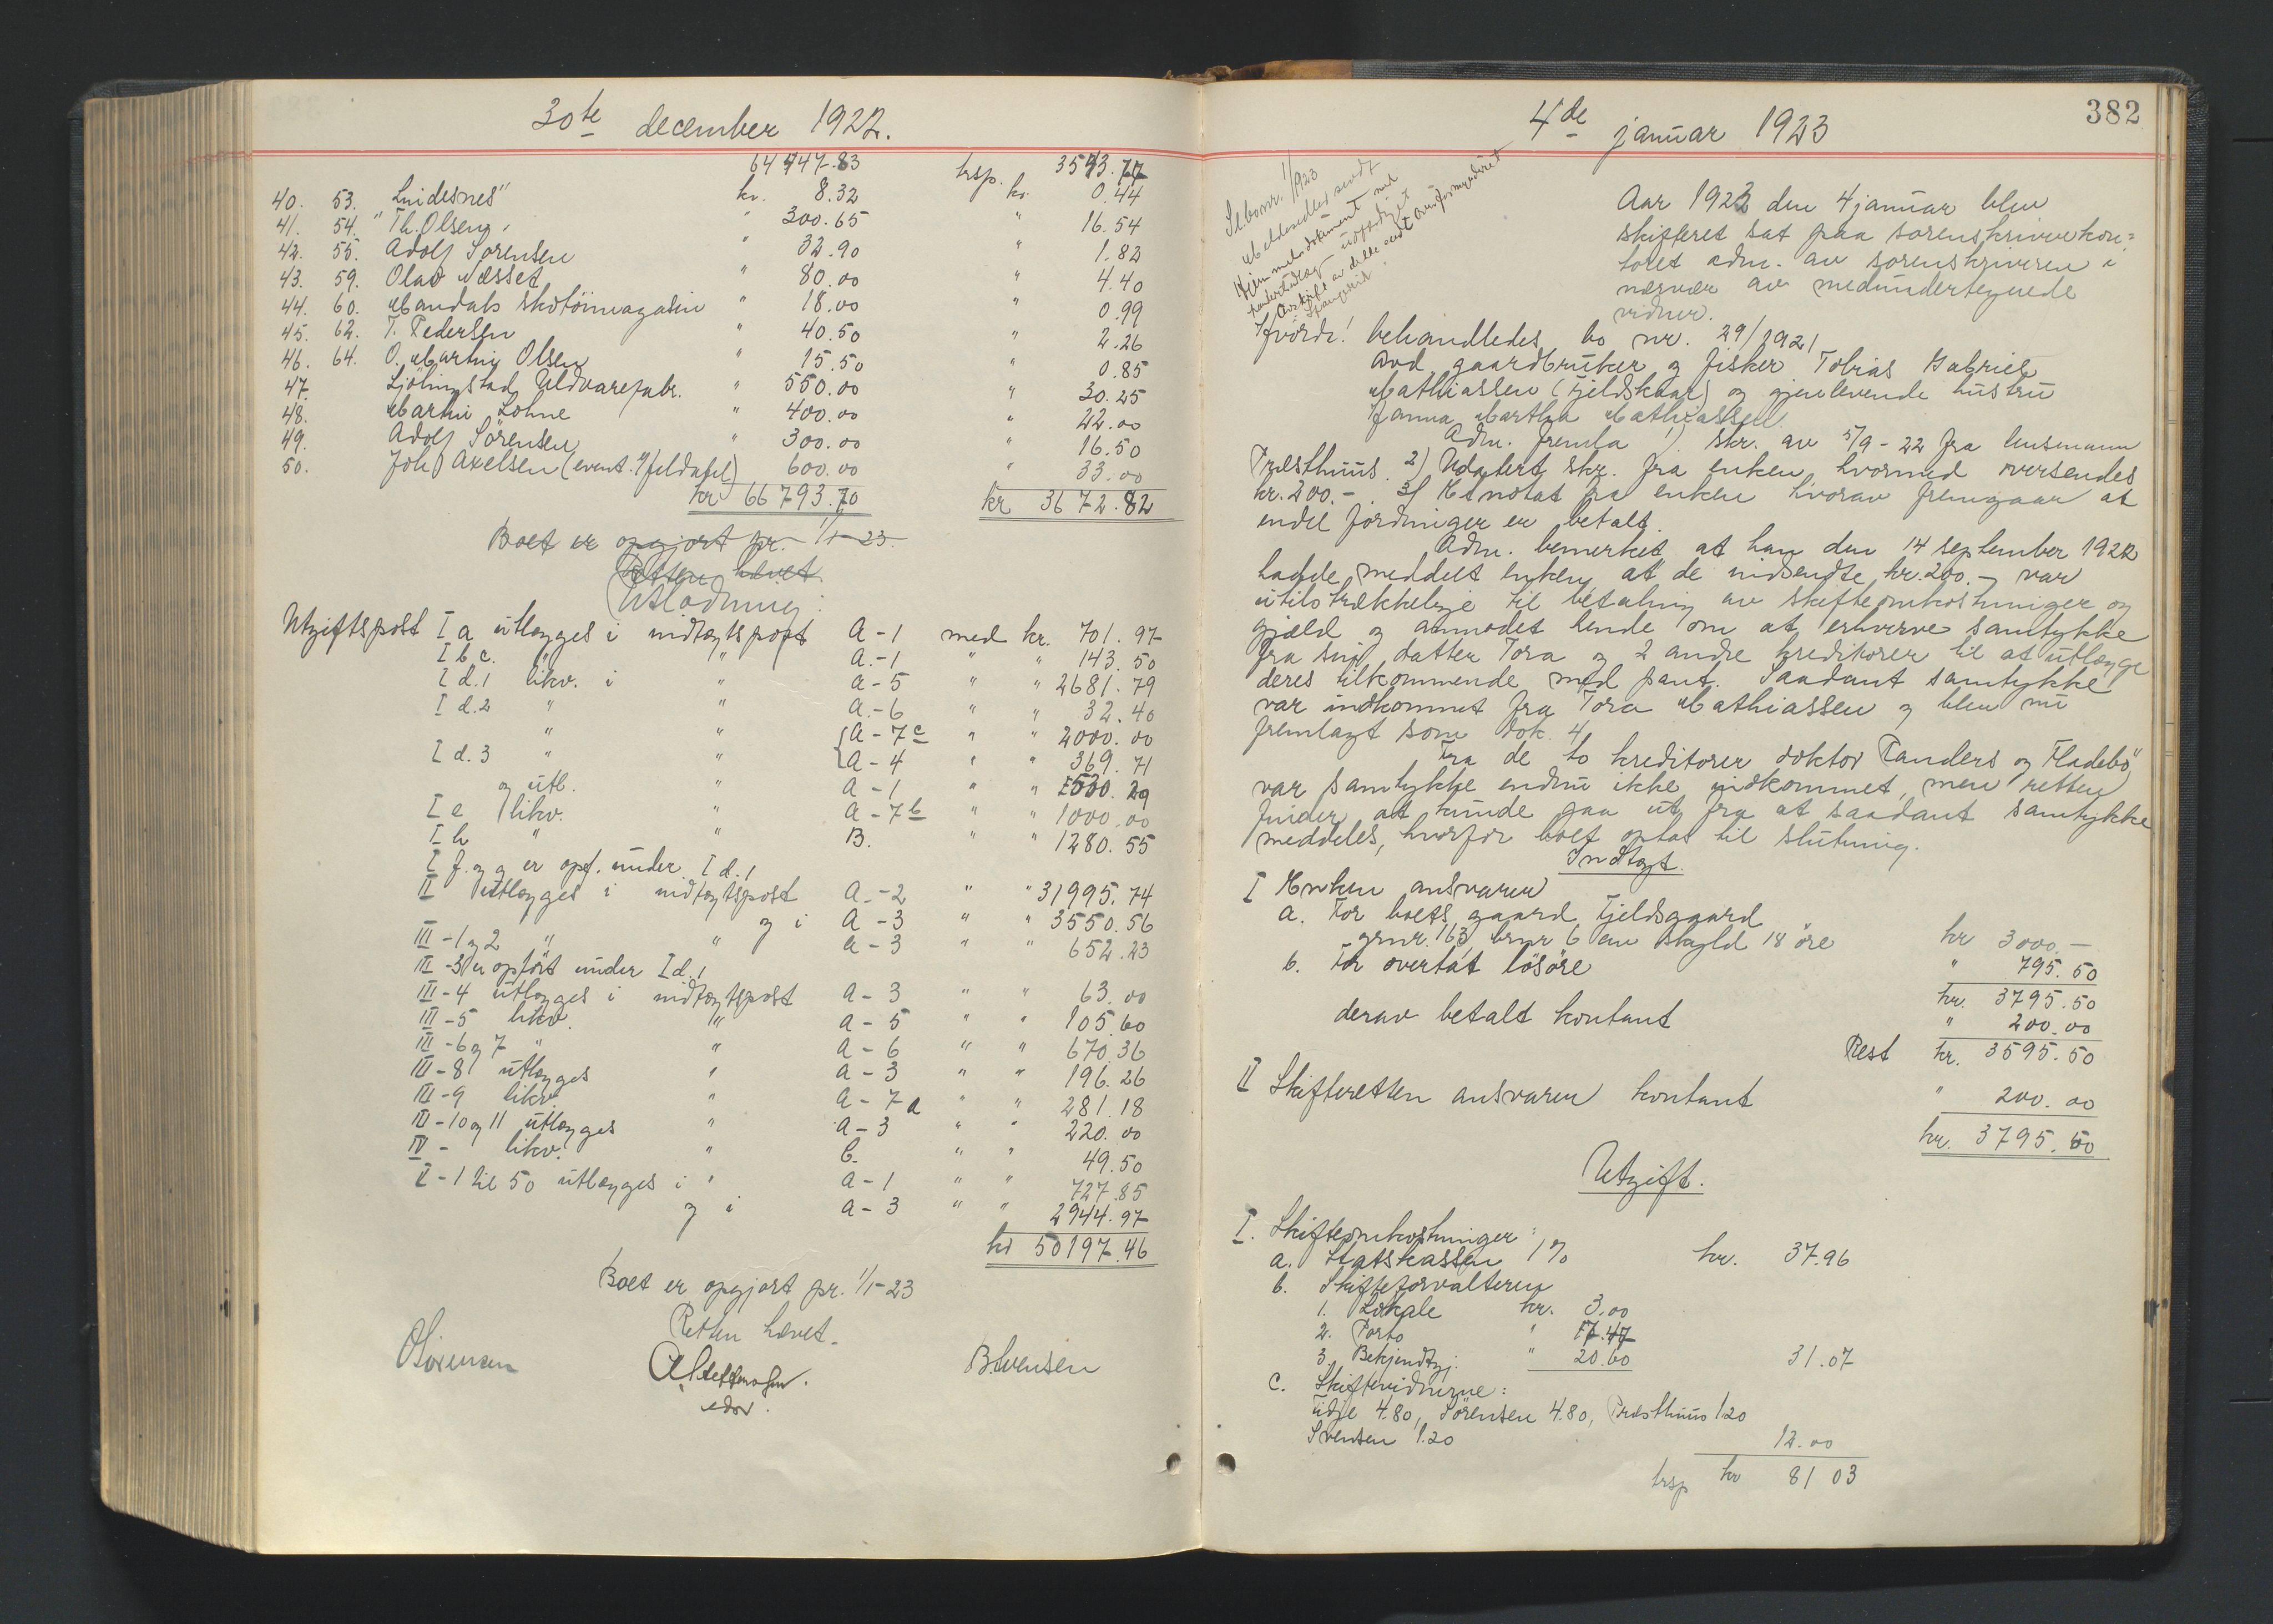 30te december 1922.
64 747.83 trsp. 3573.77
40. 53. "Lindesnes" kr. 8.32 kr. 0.44
41. 54. Th. Olsen " 300.65 " 16.54
42. 55. Adolf Sørensen " 32.90 " 1.82
43. 59. Olav Næsset " 80.00 " 4.40
44. 60. Mandals skotöimagasin " 18.00 " 0.99
45. 62. T. Pedersen " 40.50 " 2.26
46. 64. O. Martin Olsen " 15.50 " 0.85
47. Ljölingstad Uldvarefabr. " 550.00 " 30.25
48. Martin Löhne " 400.00 " 22.00
49. Adolf Sörensen " 300.00 " 16.50
50. Joh. Axelsen (event. ) 600.00 " 33.00
kr 66793.70 kr 3672.82
Boet er opgjort pr. 1/1-23.
Retten hævet.
Utlodning:
Utgiftspost I a utlægges i indtægtspost A-1 med kr. 701.97
I b c. " " A-1 " " 143.50
I d.1 likv. i " A-5 " " 2681.79
I d.2 " " A-6 " " 32.40
" " A-7c " " 2000.00
I d.3 " " A-4 " " 369.71
og utl. " A-1 " " 1530.29
I e likv. " A-7b " " 1000.00
I h " " B. " " 1280.55
I f. og g er opf. under I d.1
II Utlægges i indtægtspost A-2 " " 31995.74
og i A-3 " " 3550.56
III-1 og 2 " " A-3 " " 652.23
III-3 er opfört under I d.1
III-4 utlægges i indtægtspost A-3 " " 63.00
III-5 likv. " A-5 " " 105.60
III-6 og 7 " " A-6 " " 670.36
III-8 utlægges " A-3 " " 196.26
III-9 likv. " A-7a " " 281.18
III-10 og 11 utlægges " A-3 " " 220.00
IV - likv. " C. " " 49.50
V-1 til 50 utlægges i " A-1 " " 727.85
og i A-3 " " 2944.97
kr 50197.46
Boet er opgjort pr. 1/1-23
Retten hævet.
B. Svensen
382
4de januar 1923
1/1923
Meldeseddel sendt
Hjemmelsdokument med
utfærdiget
Avskrift av dette sendt overformynderiet
Aar 1923 den 4 januar blev
skifteret sat paa sorenskriverkon=
toret adm. av sorenskriveren i
nærvær av medundertegnede
vidner.
Hvorda! behandledes bo nr. 29/1921
avd. gaardbruker og fisker Tobias Gabriel
Mathiassen (Fjeldskaar) og gjenlevende hustru
Hanna Martha Mathiassen.
Adm. fremla 1) skr. av 5/9-22 fra lensmann
Præsthuus. 2) Udatert skr. fra enken, hvormed oversendes
kr. 200.-. 3) Et notat fra enken hvorav fremgaar at
endel fordringer er betalt.
Adm. bemerket at han den 14 september 1922
hadde meddelt enken at de indsendte kr. 200.- var
utilstrækkelige til betaling av skifteomkostninger og
gjæld og anmodet hende om at erhverve samtykke
fra sin datter Tora og 2 andre kreditorer til at utlægge
deres tilkommende med pant. Saadant samtykke
var indkommet fra Tora Mathiassen og blev nu
fremlagt som dok. 4.
Fra de to kreditorer doktor Randers og Fladebö
var samtykke endnu ikke indkommet, men retten
finder at kunde gaa ut fra at saadant samtykke
meddeles, hvorfor boet optas til slutning.
Indtægt.
I Enken ansvarer
a. For boets gaard Fjeldsgaard
grnr. 163 brnr 6 av skyld 18 öre kr 3000.-
b. For overtat lösöre " 795.50
kr. 3795.50
derav betalt kontant " 200.00
Rest kr. 3595.50
II Skifteretten ansvarer kontant " 200.00
kr. 3795.50
Utgift.
I. Skifteomkostninger:
a. Statskassen 1% kr. 37.96
b. Skifteforvalteren
1. Lokale kr. 3.00
2. Porto " 7.47
3. Bekjendtgj. " 20.60 31.07
c. Skiftevidnerne:
Tidje 4.80, Sörensen 4.80, Præsthuus 1.20
Svensen 1.20 12.00
trsp kr 81 03